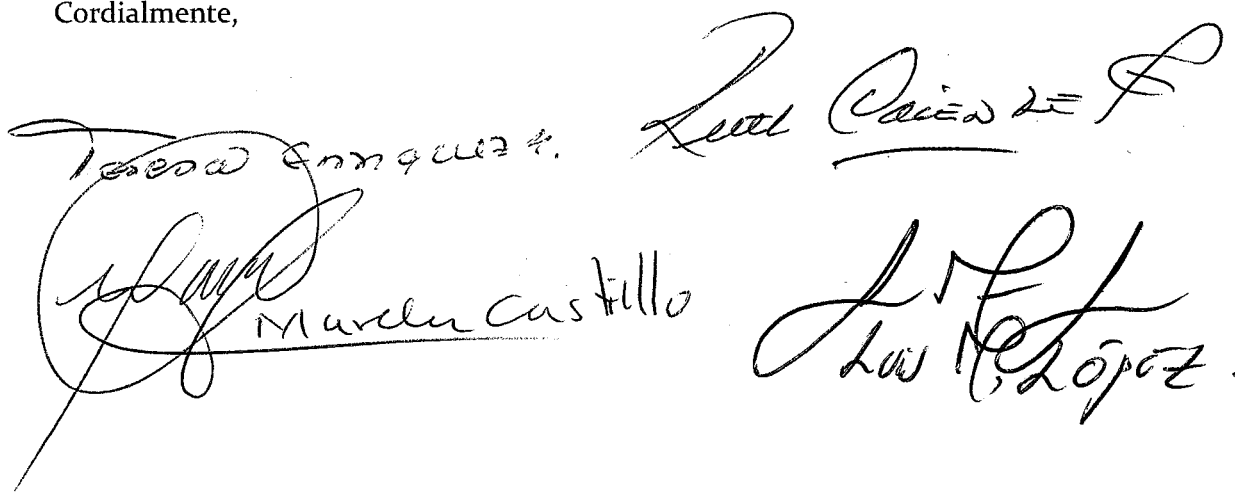 Cordialmente,
Teresa Enriquez
Ruth
Marcela Castillo
Luis M. López